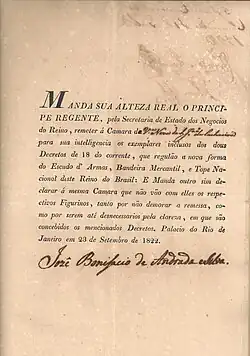 MANDA SUA ALTEZA REAL O PRINCI-
PE REGENTE, pela Secretaria de Estado dos Negocios
do Reino, remeter á Camara da Vª Nova de
para sua intelligencia os exemplares inclusos dos dous
Decretos de 18 do corrente, que regulão a nova fórma
do Escudo d'Armas, Bandeira Mercantil, e Tope Na-
cional deste Reino do Brasil: E Manda outro sim de-
clarar á mesma Camara que não vão com elles os respe-
ctivos Figurinos, tanto por não demorar a remessa, co-
mo por serem até desnecessarios pela clareza, em que são
concebidos os mencionados Decretos. Palacio do Rio de
Janeiro em 23 de Setembro de 1822.
José Bonifacio de Andrada e Silva.